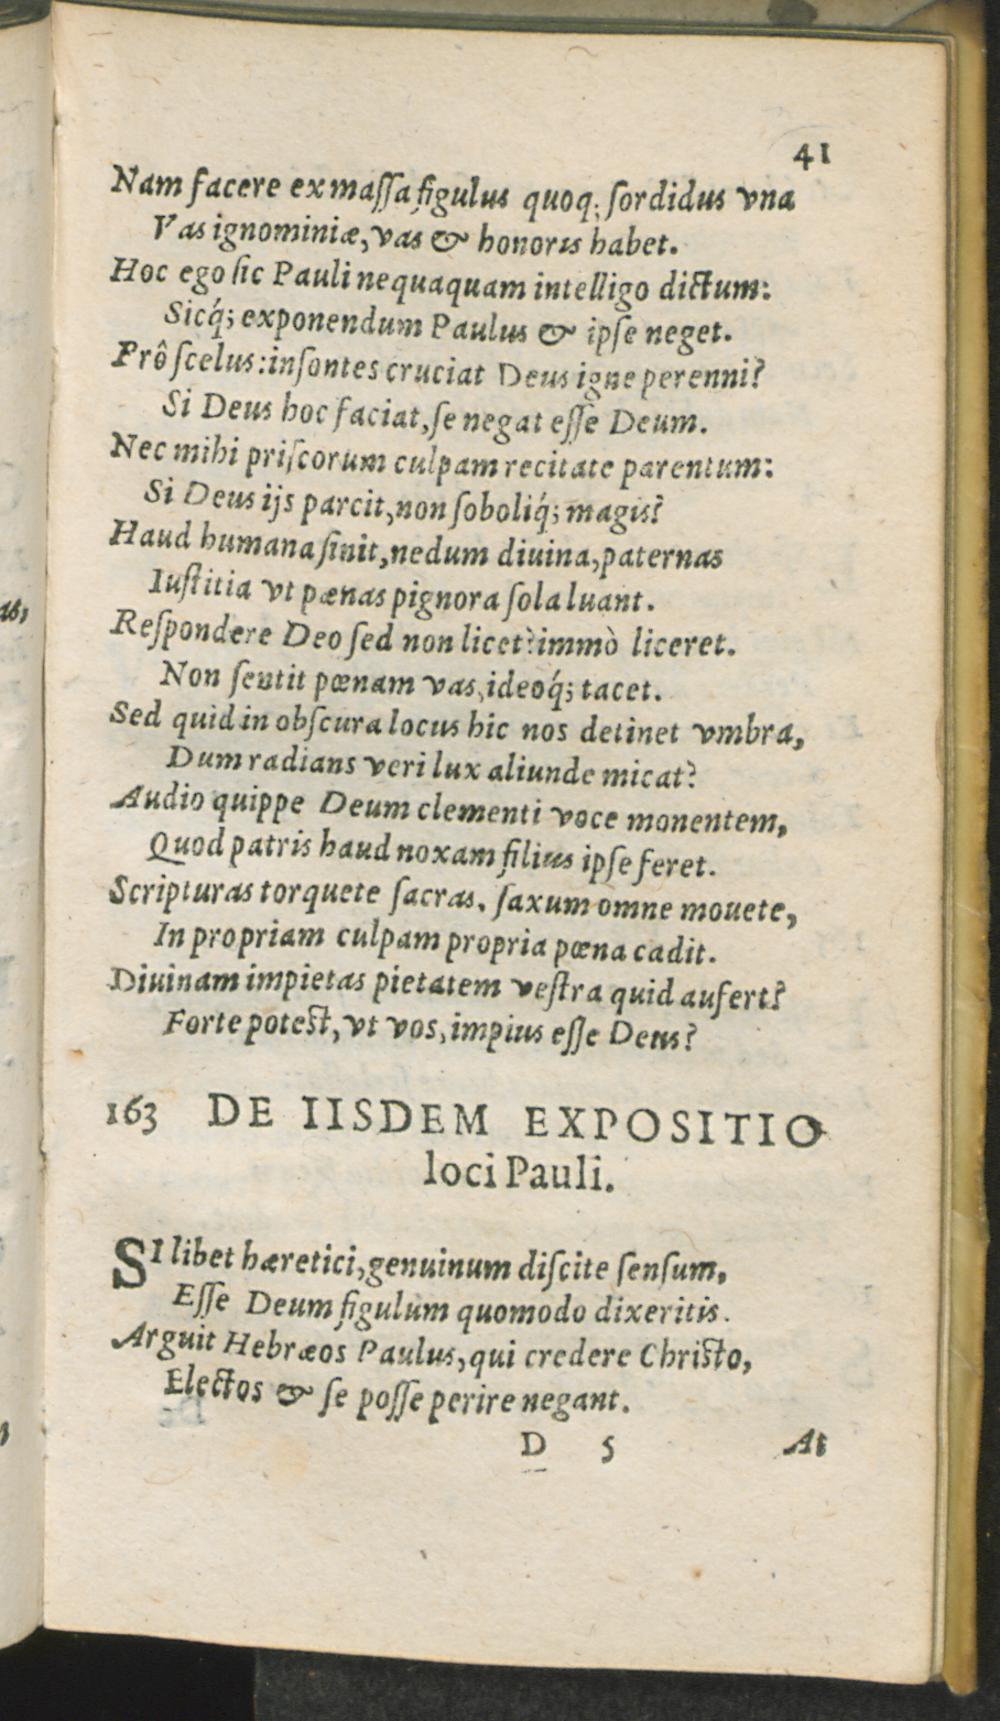 41
Nam facere ex massa figulus quoq; sordidus vna
Vas ignominiæ, vas & honoris habet.
Hoc ego sic Pauli nequaquam intelligo dictum:
Sicq́; exponendum Paulus & ipse neget.
Prô scelus: insontes cruciat Deus igne perenni?
Si Deus hoc faciat, se negat esse Deum.
Nec mihi priscorum culpam recitate parentum:
Si Deus ijs parcit, non soboliq́; magis?
Haud humana sinit, nedum diuina, paternas
Iustitia vt pænas pignora sola luant.
Respondere Deo sed non licet? immò liceret.
Non sentit pœnam vas, ideoq́; tacet.
Sed quid in obscura locus hic nos detinet vmbra,
Dum radians veri lux aliunde micat?
Audio quippe Deum clementi voce monentem,
Quod patris haud noxam filius ipse feret.
Scripturas torquete sacras, saxum omne mouete,
In propriam culpam propria pœna cadit.
Diuinam impietas pietatem vestra quid aufert?
Forte potest, vt vos, impius esse Deus?
163 DE IISDEM EXPOSITIO
loci Pauli.
SI libet hæretici, genuinum discite sensum,
Esse Deum figulum quomodo dixeritis.
Arguit Hebræos Paulus, qui credere Christo,
Electos & se posse perire negant.
D 5 At